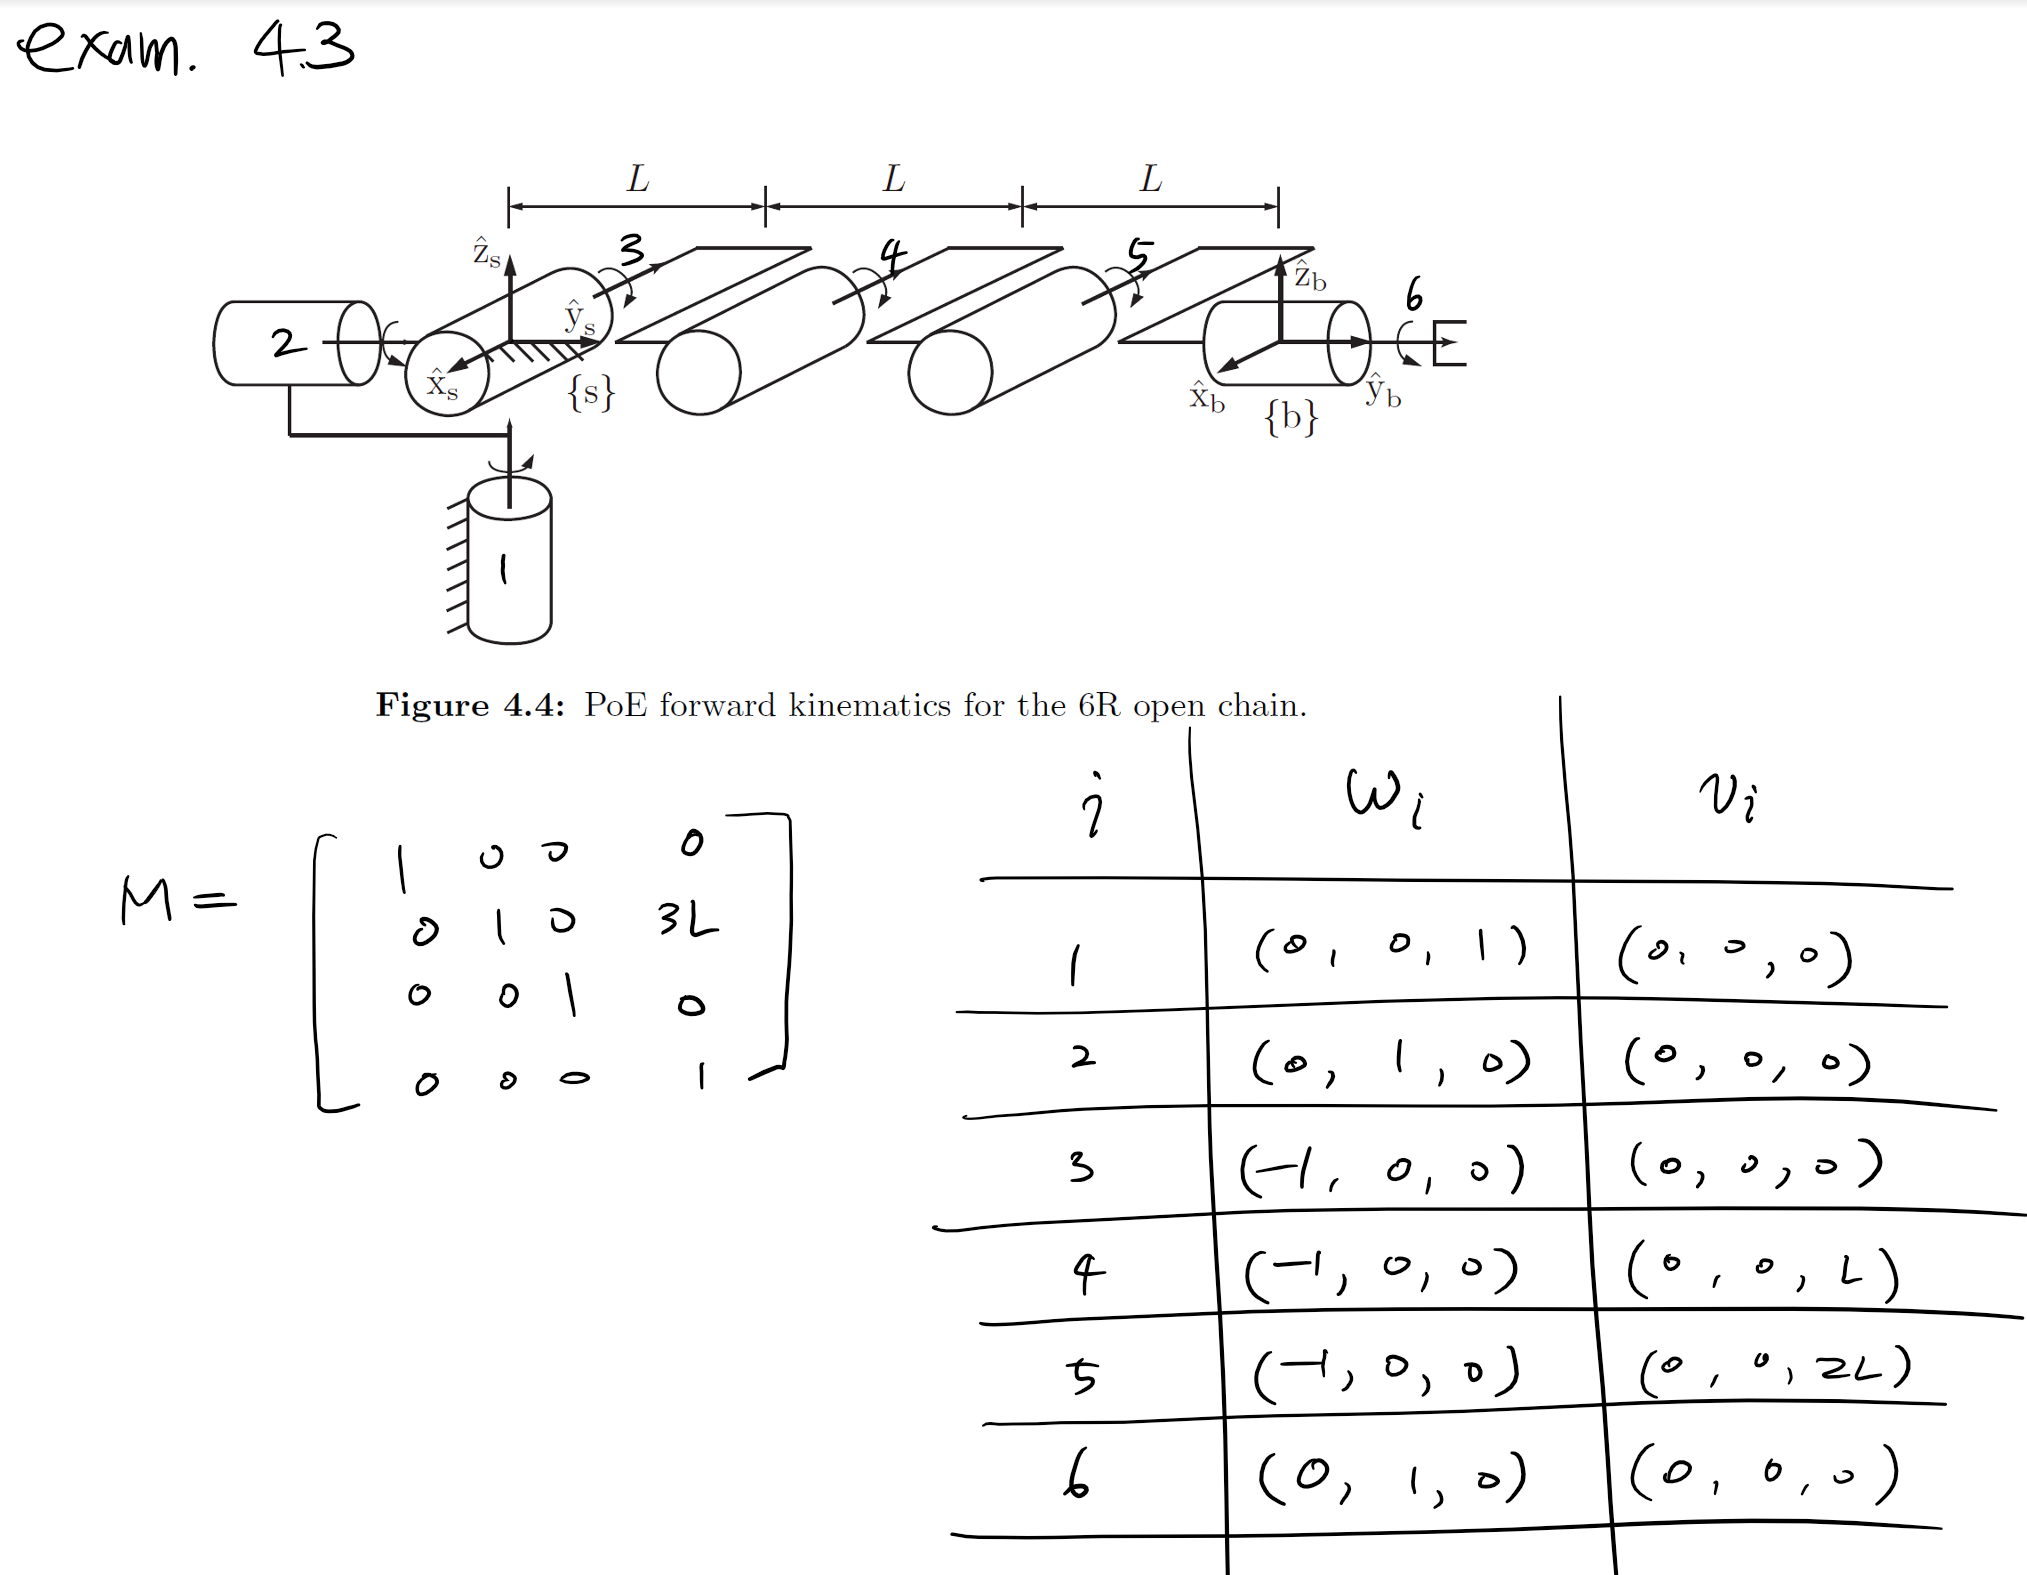 exam. 4.3
L L L
ẑs 3 4 5 ẑb 6
2 ŷs
x̂s {s} x̂b {b} ŷb
1
Figure 4.4: PoE forward kinematics for the 6R open chain.
i ωi vi
M =
1 0 0 0
0 1 0 3L
0 0 1 0
0 0 0 1
1 (0, 0, 1) (0, 0, 0)
2 (0, 1, 0) (0, 0, 0)
3 (-1, 0, 0) (0, 0, 0)
4 (-1, 0, 0) (0, 0, L)
5 (-1, 0, 0) (0, 0, 2L)
6 (0, 1, 0) (0, 0, 0)